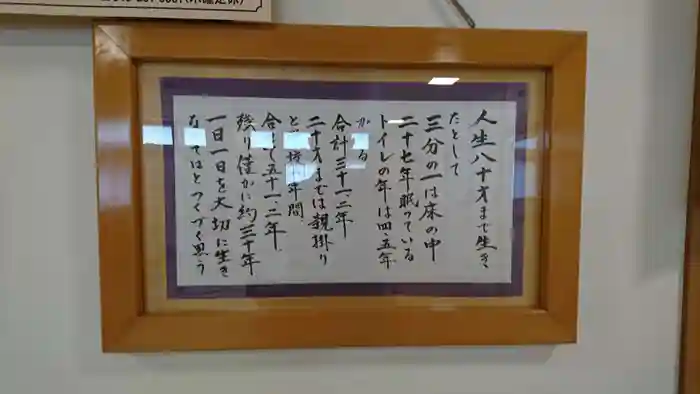 人生八十才まで生き
たとして
三分の一は床の中
二十七年眠っている
トイレの年は四、五年
かかる
合計三十一、二年
二十才までは親掛り
年間
合して五十一、二年
残り僅かに約三十年
一日一日を大切に生き
なくてはとつくづく思う